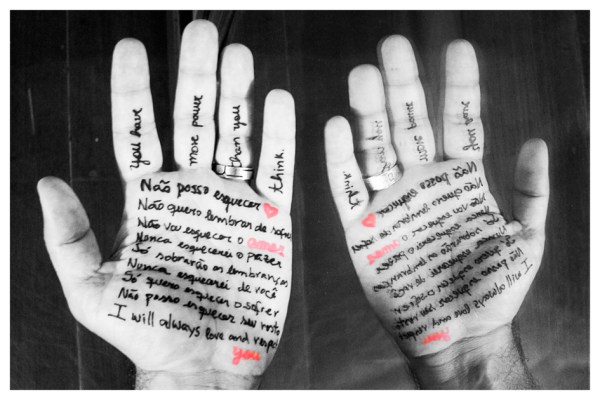 you have
more power
than you
think.
Não posso esquecer
Não quero lembrar de sofrer
Não vou esquecer o amor
Nunca esquecerei o prazer
Só sobrarão as lembranças
Nunca esquecerei de você
Só quero esquecer o sofrer
Não posso esquecer seu rosto
I will always love and respect
you